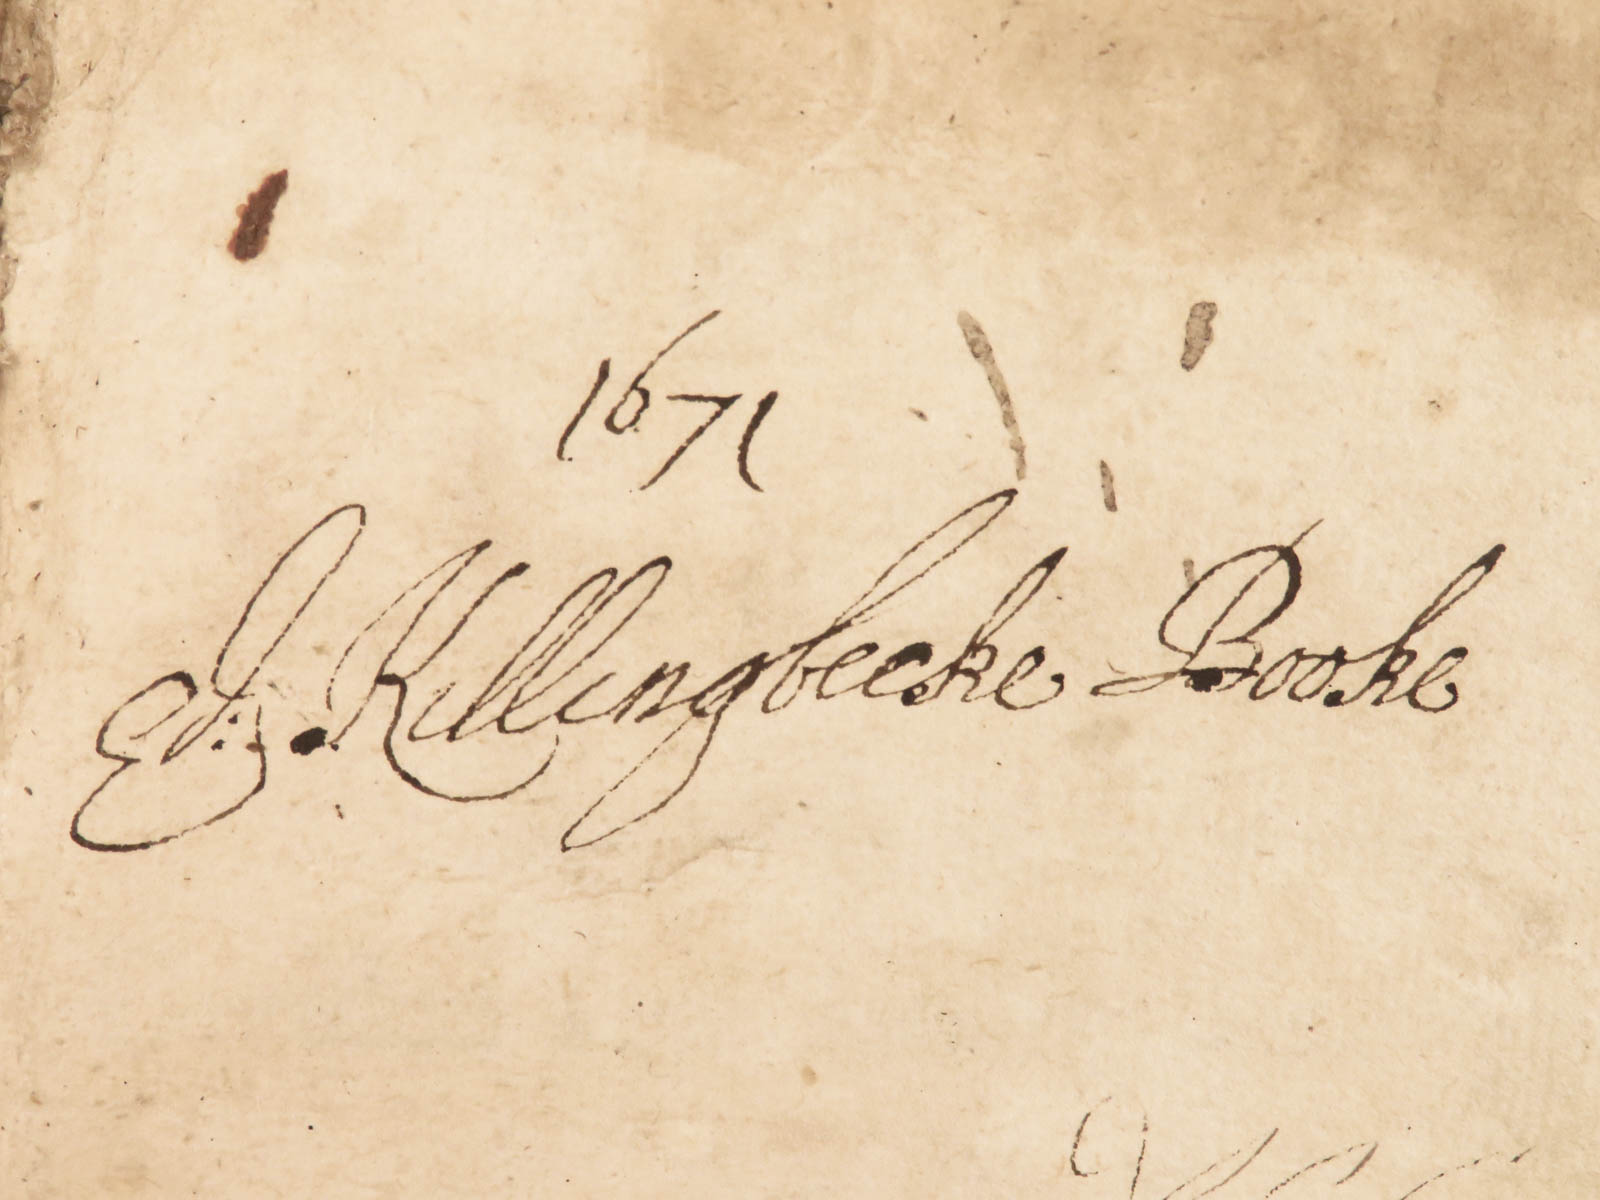 1671
Ed: Killingbecke Booke